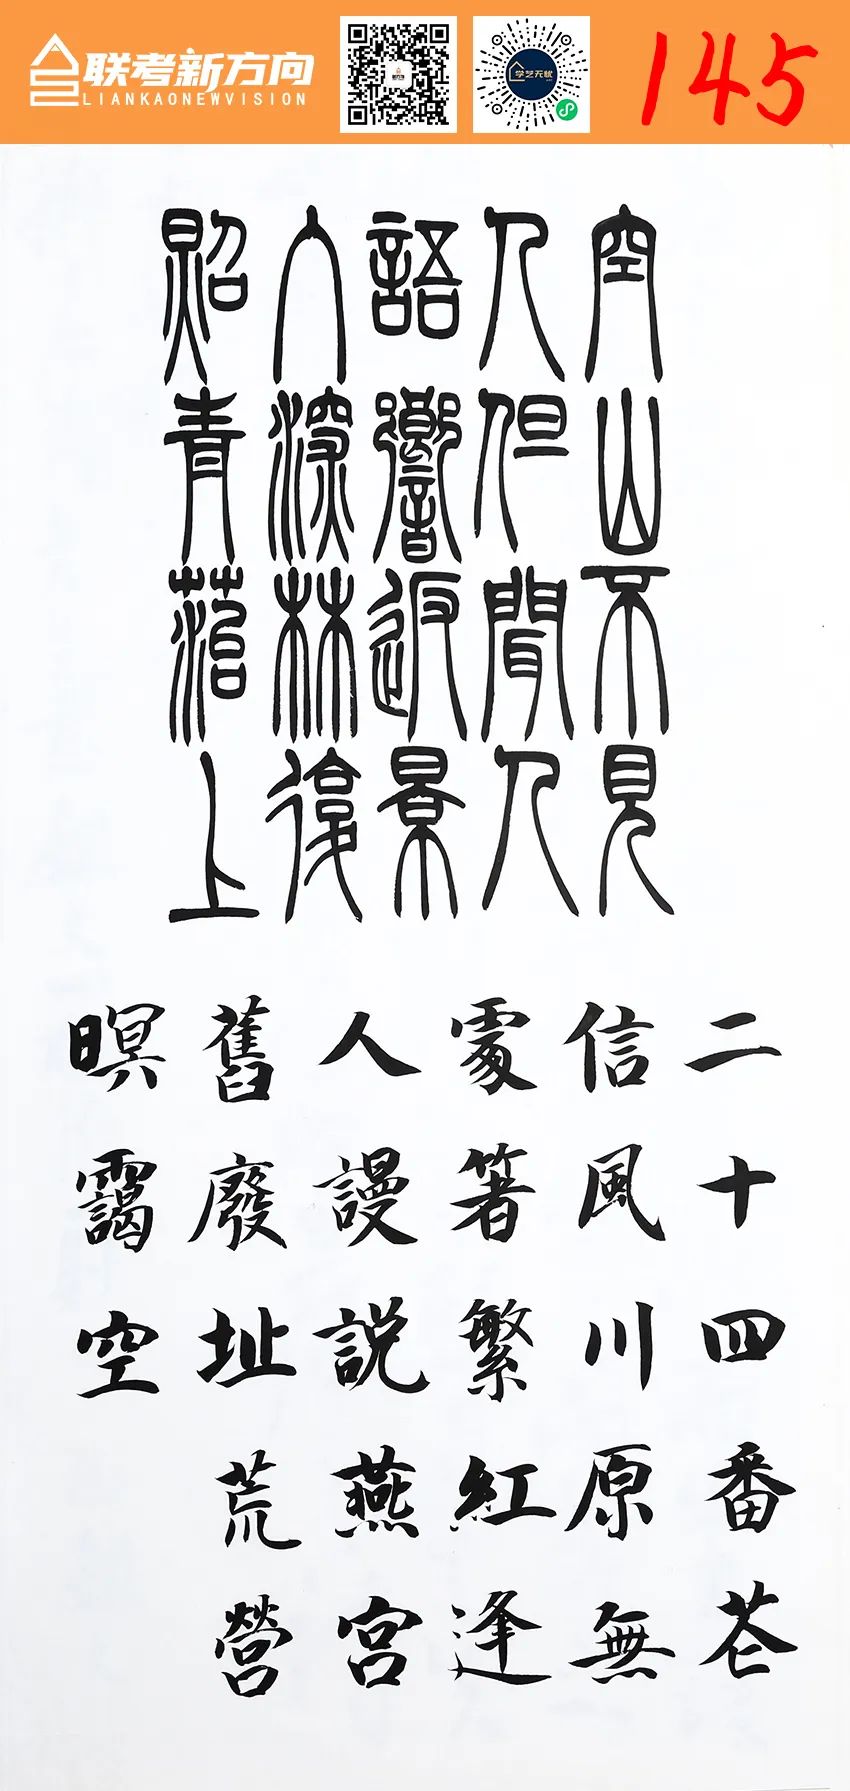 联考新方向
LIANKAONEWVISION
学艺无忧
145
空山不見
人但聞人
語響返景
入深林復
照青苔上
二十四番花
信風川原無
處著繁紅逢
人謾説燕宮
舊廢址荒營
暝靄空